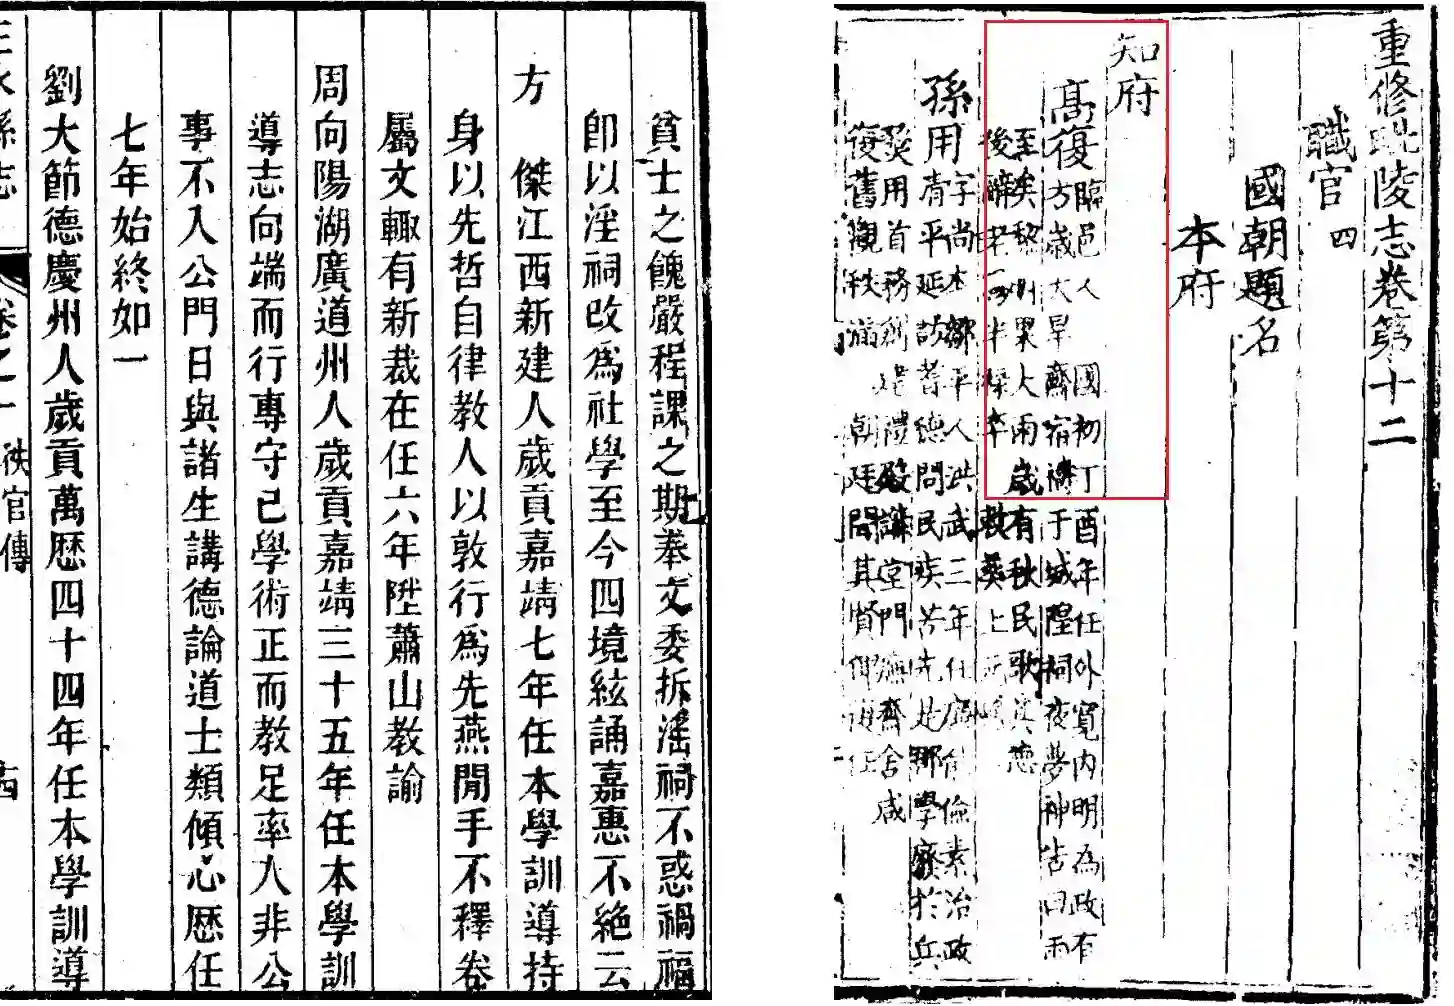 重修毗陵志卷第十二
職官四
國朝題名
本府
知府
高復臨邑人 國初丁酉年任外寬内明為政有
方歲大旱齋宿禱于城隍祠夜夢神告曰雨
至矣黎明果大雨歲有秋民歌其德
後辭老 卒 敕葬上
孫用字尚本鄒平人洪武三年任 能儉素治政
清平延訪耆德問民疾苦先是郡學廢於兵
燹用首務創建禮殿講堂門廡齋舍咸
復舊觀秩滿 朝廷聞其賢
貧士之餽嚴程課之期奉文委拆淫祠不惑禍福
卽以淫祠改爲社學至今四境絃誦嘉惠不絶云
方 傑江西新建人歲貢嘉靖七年任本學訓導持
身以先哲自律教人以敦行爲先燕閒手不釋卷
屬文輙有新裁在任六年陞蕭山教諭
周向陽湖廣道州人歲貢嘉靖三十五年任本學訓
導志向端而行專守己學術正而教足率人非公
事不入公門日與諸生講德論道士類傾心歷任
七年始終如一
劉大節德慶州人歲貢萬歷四十四年任本學訓導
三水縣志 卷之一 秩官傳